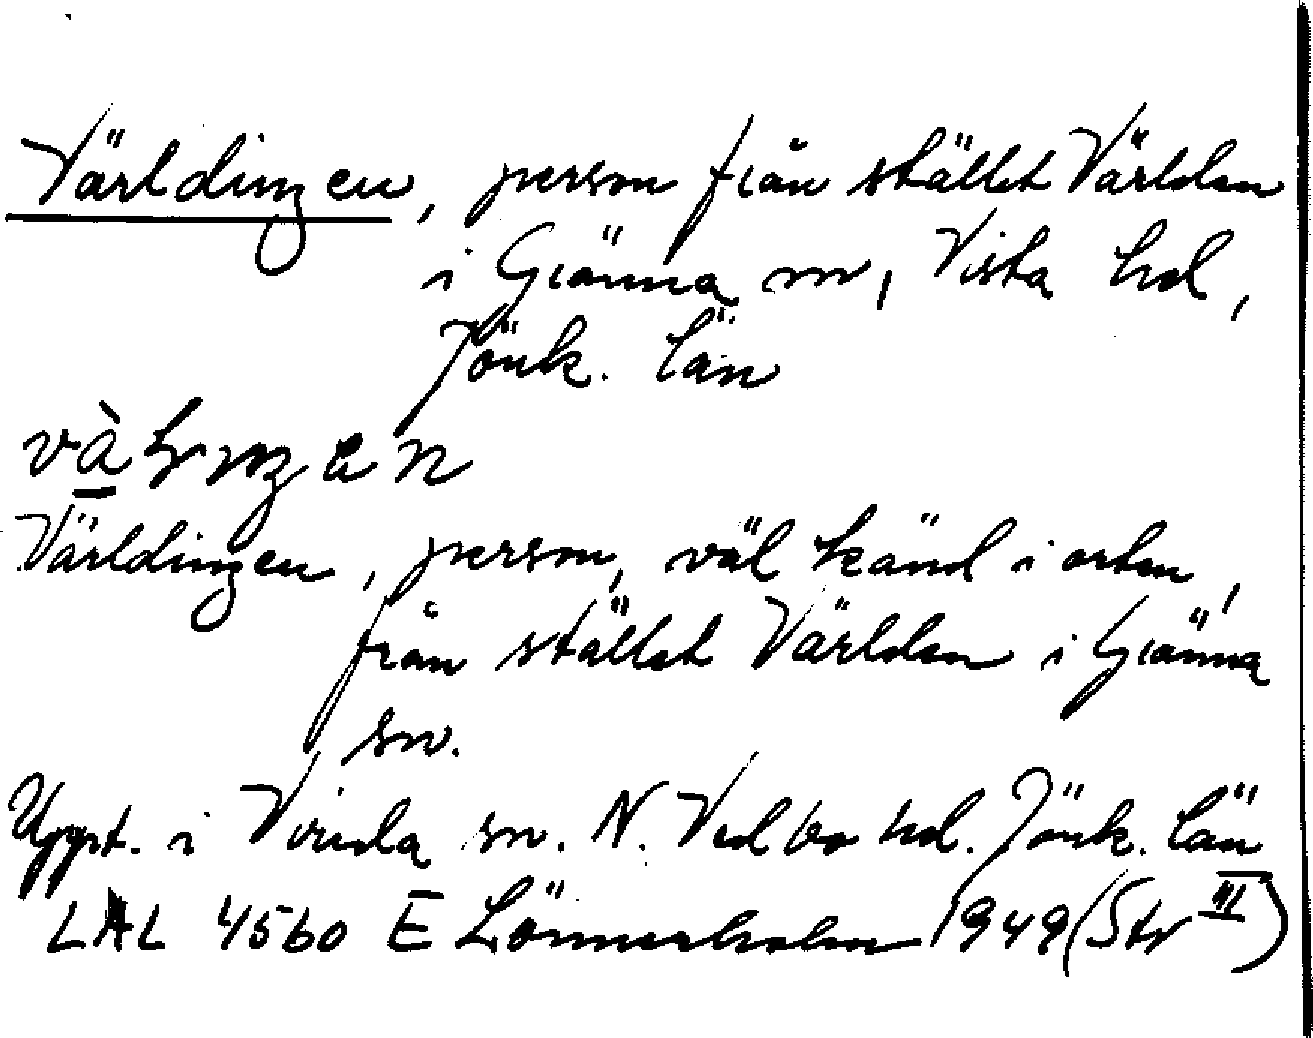 Världingen, person från stället Världen
i Gränna sn, Vista hd,
Jönk. län
Världingen, person, väl känd i orten,
från stället Världen i Gränna
sn.
Uppt. i Vireda sn. N. Vedbo hd. Jönk. län
LAL 4560 E Lönnerholm 1949 (Str III)